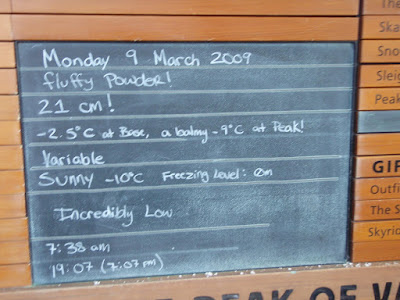 Monday 9 March 2009
fluffy Powder!
21 cm!
-2.5°C at Base, a balmy -9°C at Peak!
Variable
Sunny -10°C Freezing Level: 0m
Incredibly Low
7:38 am
19:07 (7:07 pm)
The
Ska
Sno
Sleig
Peak
GIF
Outfi
The S
Skyrid
PEAK OF VA